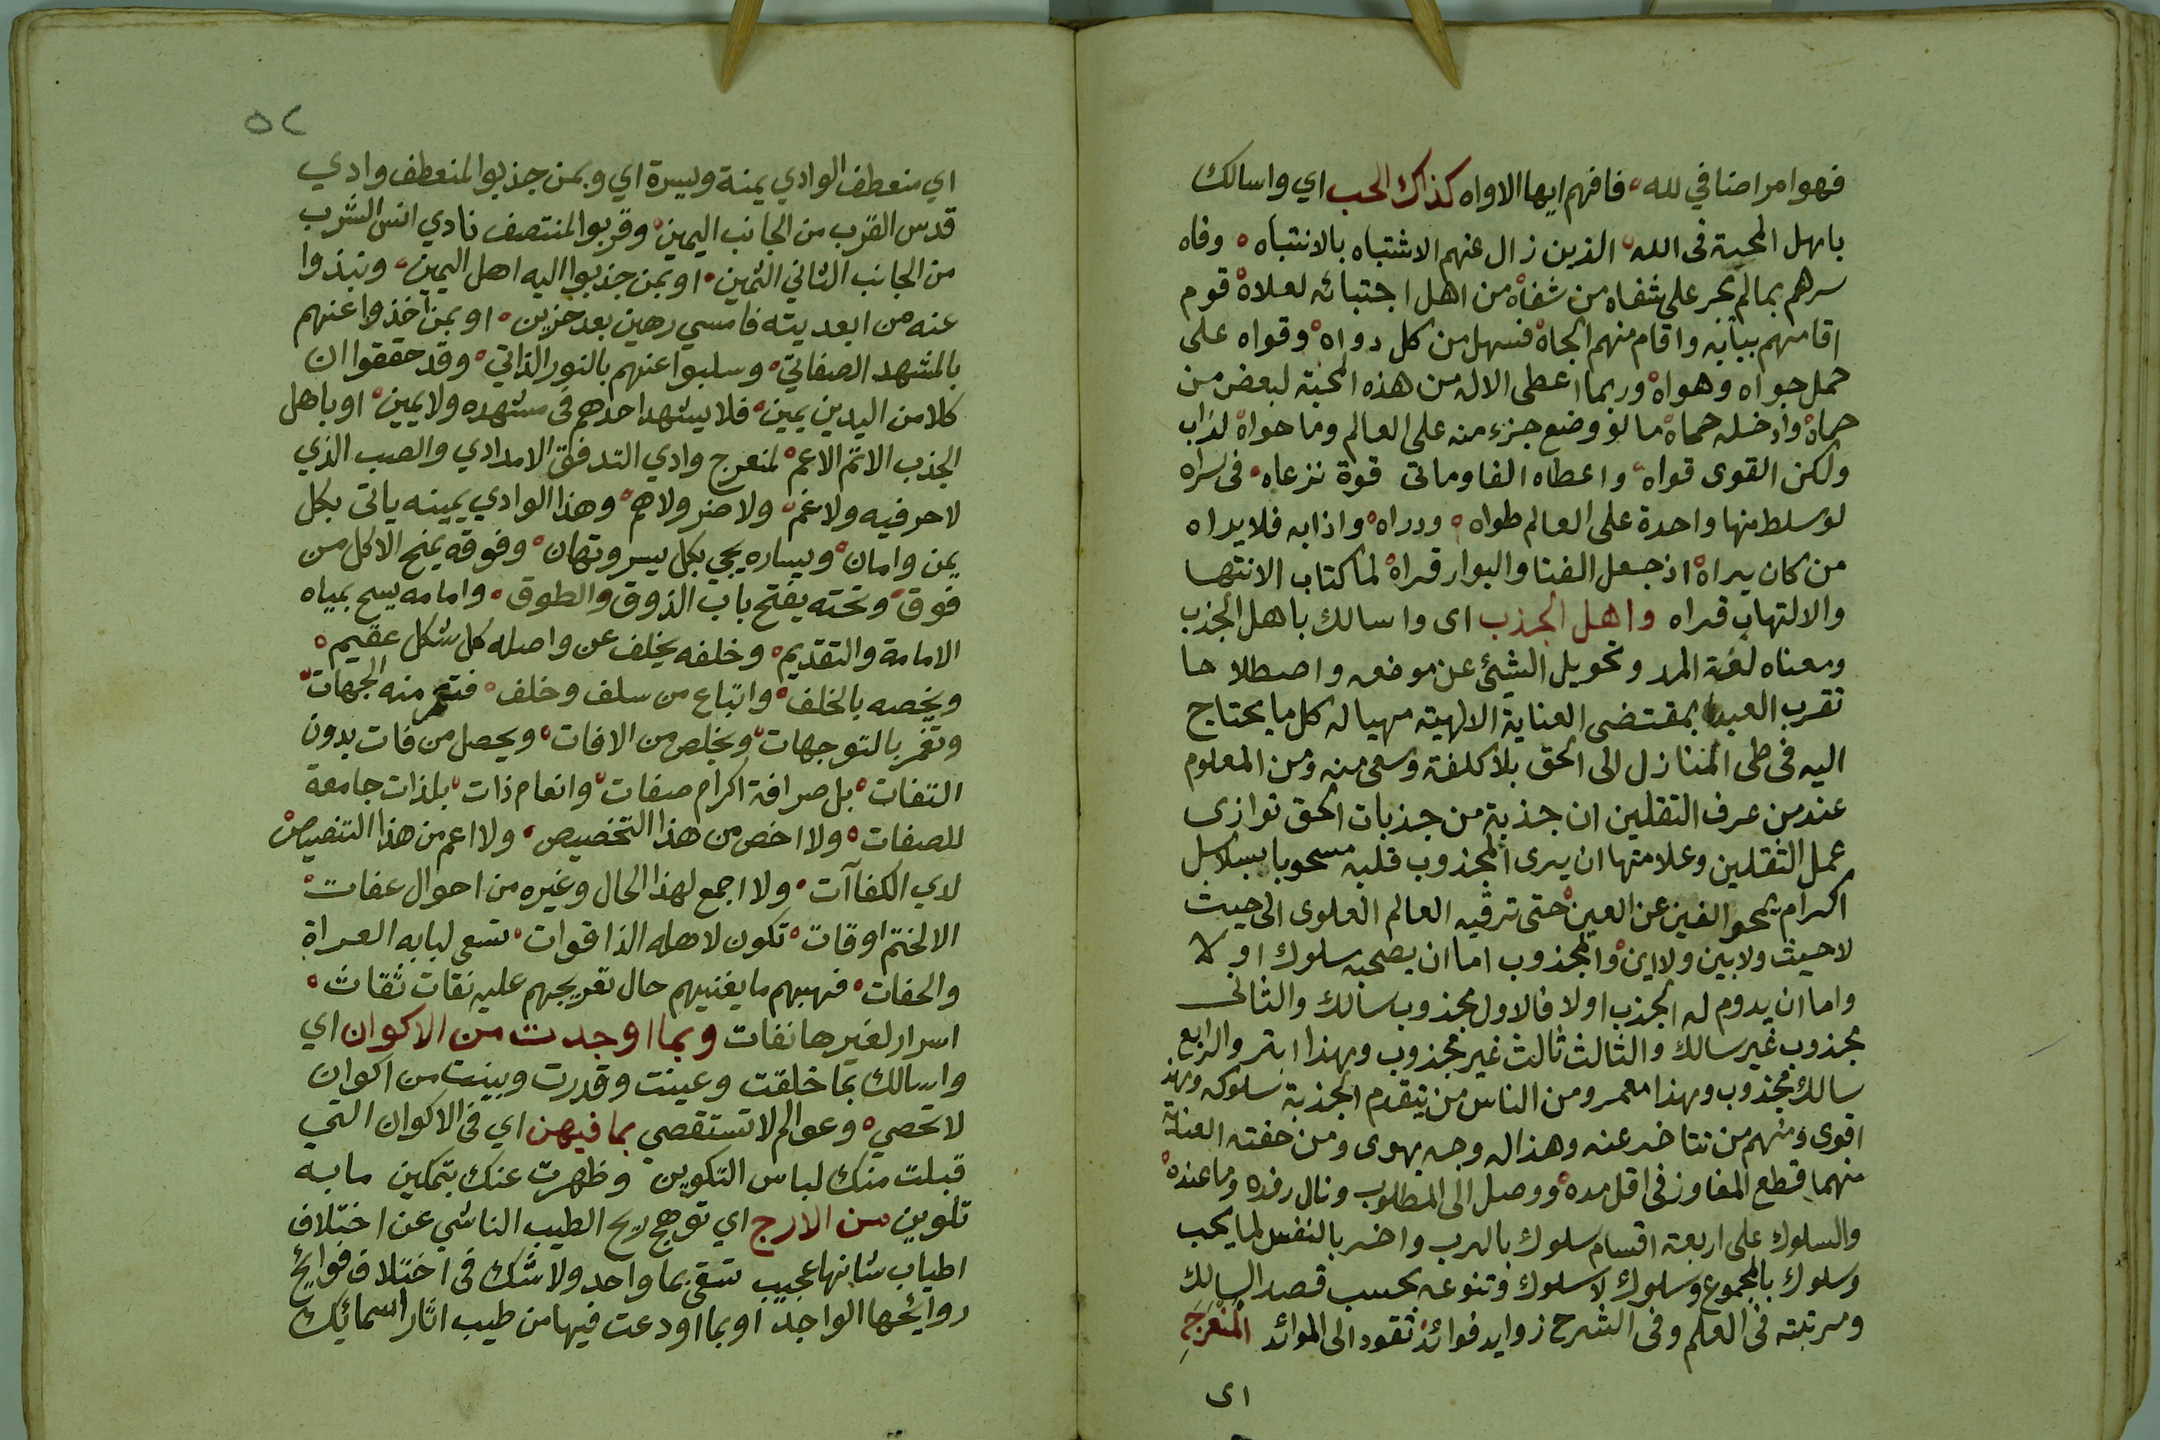 فهوا مراضنا في لله فافهم ايها الاواه كذاك الحب اي واسالك
باهل المحبة فى الله الذين زال عنهم الاشتباه بالانتباه وفاه
سرهم بمالم يجر على شفاه من شفاه من اهل اجتبائه لعلاه قوم
اقامهم ببابه واقام منهم الجاه فسهل من كل دواه وقواه على
حمل جواه وهواه وربما اعطى الاله من هذه المحبة لبعض من
حماه وادخله حماه ما لو وضع جزء منه على العالم وما حواه لذاب
ولكن القوى قواه واعطاه الفا وماتى قوة نزعاه فى سراه
لو سلط منها واحدة على العالم طواه ودراه واذابه فلا يراه
من كان يراه اذ جعل الفنا والبوار قراه لما كتاب الانتها
والالتهاب قراه واهل الجذب اى واسالك باهل الجذب
ومعناه لغة المد وتحويل الشيئ عن موضعه واصطلاحا
تقرب العبد بمقتضى العناية الالهية مهيا له كل ما يحتاج
اليه فى طى المنازل الى الحق بلا كلفة وسعى منه ومن المعلوم
عند من عرف الثقلين ان جذبة من جذبات الحق توازى
عمل الثقلين وعلامتها ان يرى المجذوب قلبه مسحوبا بسلاسل
اكرام يمحو الغين عن العين حتى ترقيه العالم العلوى الى حيث
لا حيث ولا بين ولا اين والمجذوب اما ان يصحبه سلوك او لا
واما ان يدوم له الجذب اولا فالاول مجذوب سالك والثانى
مجذوب غير سالك والثالث ثالث غير مجذوب وهذا ابتر والرابع
سالك مجذوب وهذا معمر ومن الناس من يتقدم الجذبة سلوكه وهذ
اقوى ومنهم من تتاخر عنه وهذا له وجه يهوى ومن حفته العناية
منهما قطع المفاوز فى اقل مده ووصل الى المطلوب ونال رفده وما عنده
والسلوك على اربعة اقسام سلوك بالرب واخر بالنفس لما يحب
وسلوك بالمجموع وسلوك لا سلوك وتنوعه بحسب قصد السالك
ومرتبته فى العلم وفى الشرح زوايد فوائد تقود الى الموائد المنعرج
اى
٥٢
اي منعطف الوادي يمنة ويسرة اي وبمن جذبوا لمنعطف وادي
قدس القرب من الجانب اليمين وقربوا لمنتصف نادي انس الشرب
من الجانب الثاني الثمين او بمن جذبوا اليه اهل اليمين ونبذوا
عنه من ابعديته فامسي رهين بعد حزين او بمن اخذوا عنهم
بالمشهد الصفاتي وسلبوا عنهم بالنور الذاتي وقد حققوا ان
كلا من اليدين يمين فلا يشهد احدهم فى مشهده ولا يمين او باهل
الجذب الاتم الاعم لمنعرج وادي التدفق الامدادي والصب الذي
لا حر فيه ولا غم ولا ضر ولا هم وهذا الوادي يمينه ياتى بكل
يمن وامان ويساره يجي بكل يسر وتهان وفوقه يمنح الاكل من
فوق وتحته يفتح باب الذوق والطوق وامامه يسح بمياه
الامامة والتقديم وخلفه يخلف عن واصله كل شكل عقيم
ويخصه بالخلف واتباع من سلف وخلف فتعمر منه الجهات
وتغمر بالتوجهات ويخلص من الافات ويحصل من فات بدون
التفات بل صرافة اكرام صفات وانعام ذات بلذات جامعة
للصفات ولا اخص من هذا التخصيص ولا اعم من هذا التنصيص
لدي الكفاآت ولا اجمع لهذا الحال وغيره من احوال عفات
الالختم اوقات تكون لاهله الذا قوات تسعى لبابه العراة
والحفات فيهبهم ما يغنيهم حال تعريجهم عليه نقات ثقات
اسرار لغيرها نفات وبما اوجدت من الاكوان اي
واسالك بما خلقت وعينت وقدرت وبينت من اكوان
لا تحصي وعوالم لا تستقصي بما فيهن اي فى الاكوان التي
قبلت منك لباس التكوين وظهرت عنك بتمكين ما به
تلوين من الارج اي توهج ريح الطيب الناشي عن اختلاف
اطياب شانها عجيب تسقى بما واحد ولا شك فى اختلاف فوايح
روائحها الواجد او بما اودعت فيها من طيب اثار اسمائيك